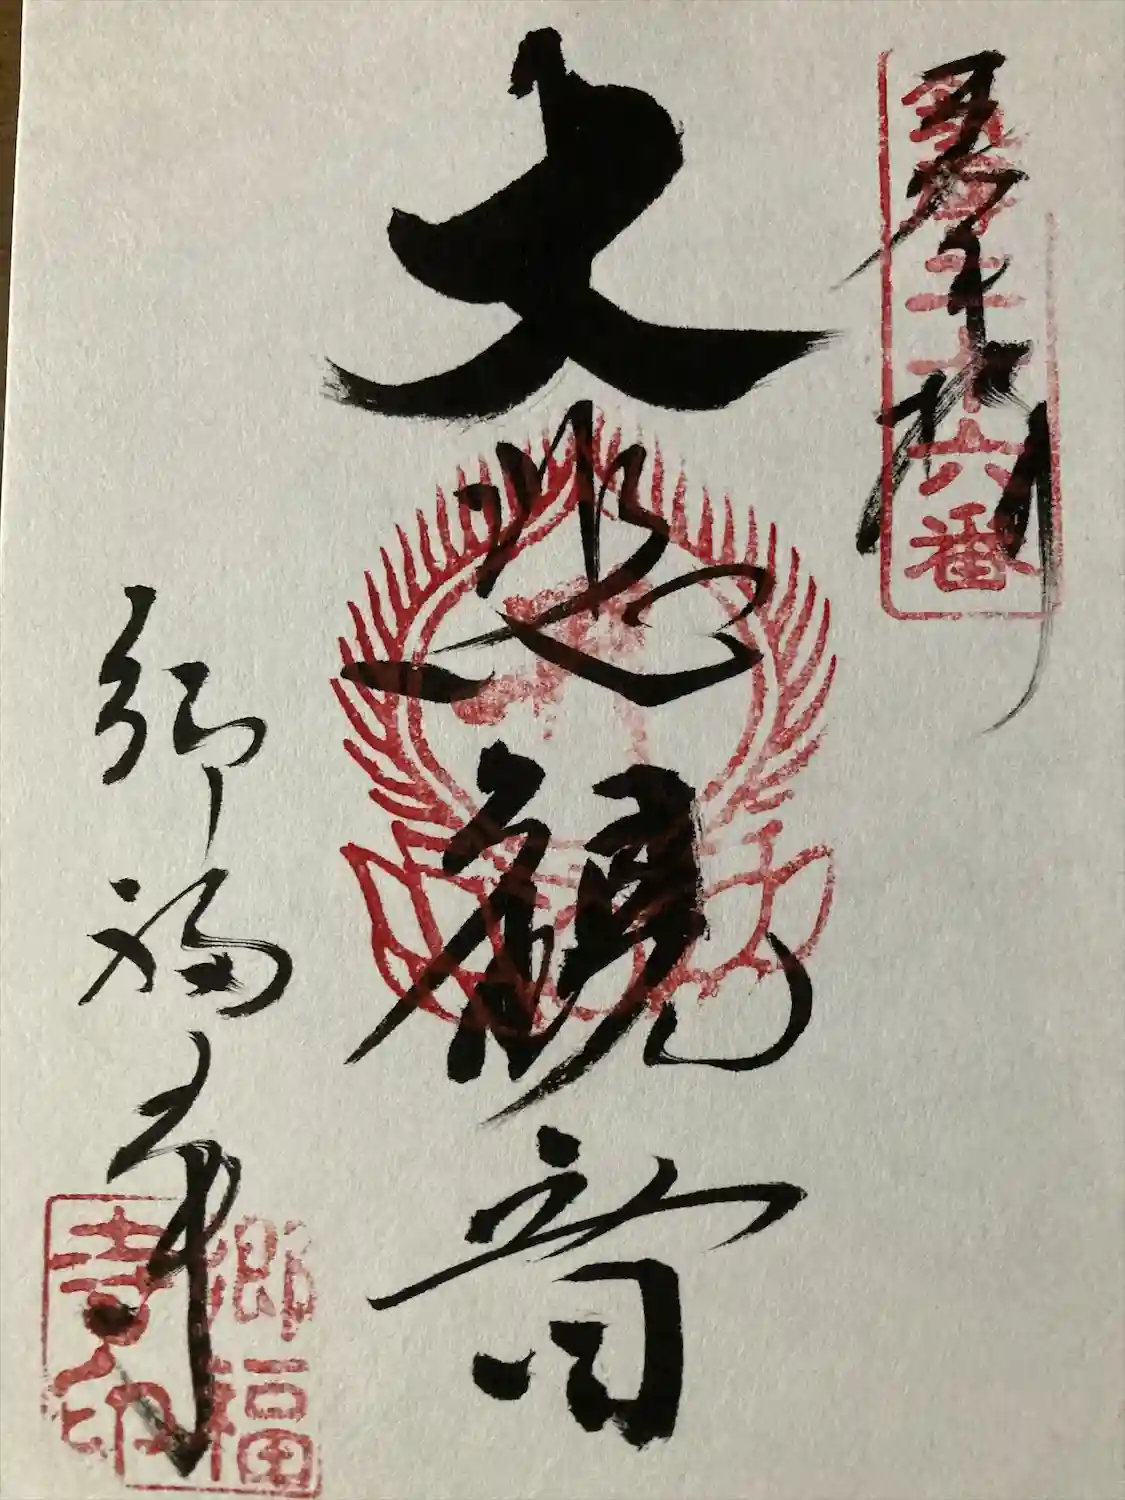 奉拝
信濃二十六番
大悲観音
郷福寺
郷福寺印